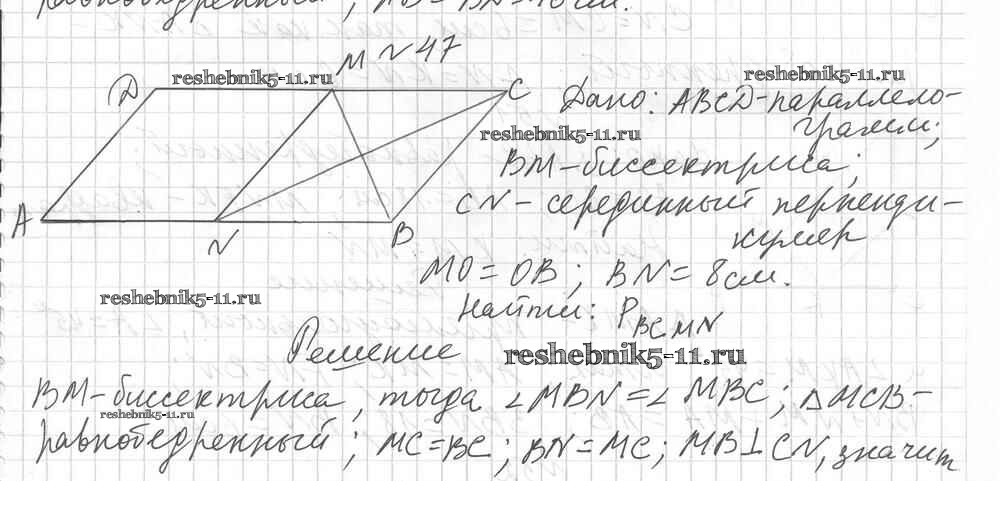 равнобедренный; AB = BN = 10 см.
M № 47
D
C
A
N
B
reshebnik5-11.ru
reshebnik5-11.ru
reshebnik5-11.ru
Дано: ABCD - параллело-
грамм;
BM - биссектриса;
CN - серединный перпенди-
куляр
MO = OB; BN = 8 см.
reshebnik5-11.ru
Найти: P BCMN
Решение
reshebnik5-11.ru
BM - биссектриса, тогда ∠MBN = ∠MBC; △MCB -
reshebnik5-11.ru
равнобедренный; MC = BC; BN = MC; MB ⊥ CN, значит